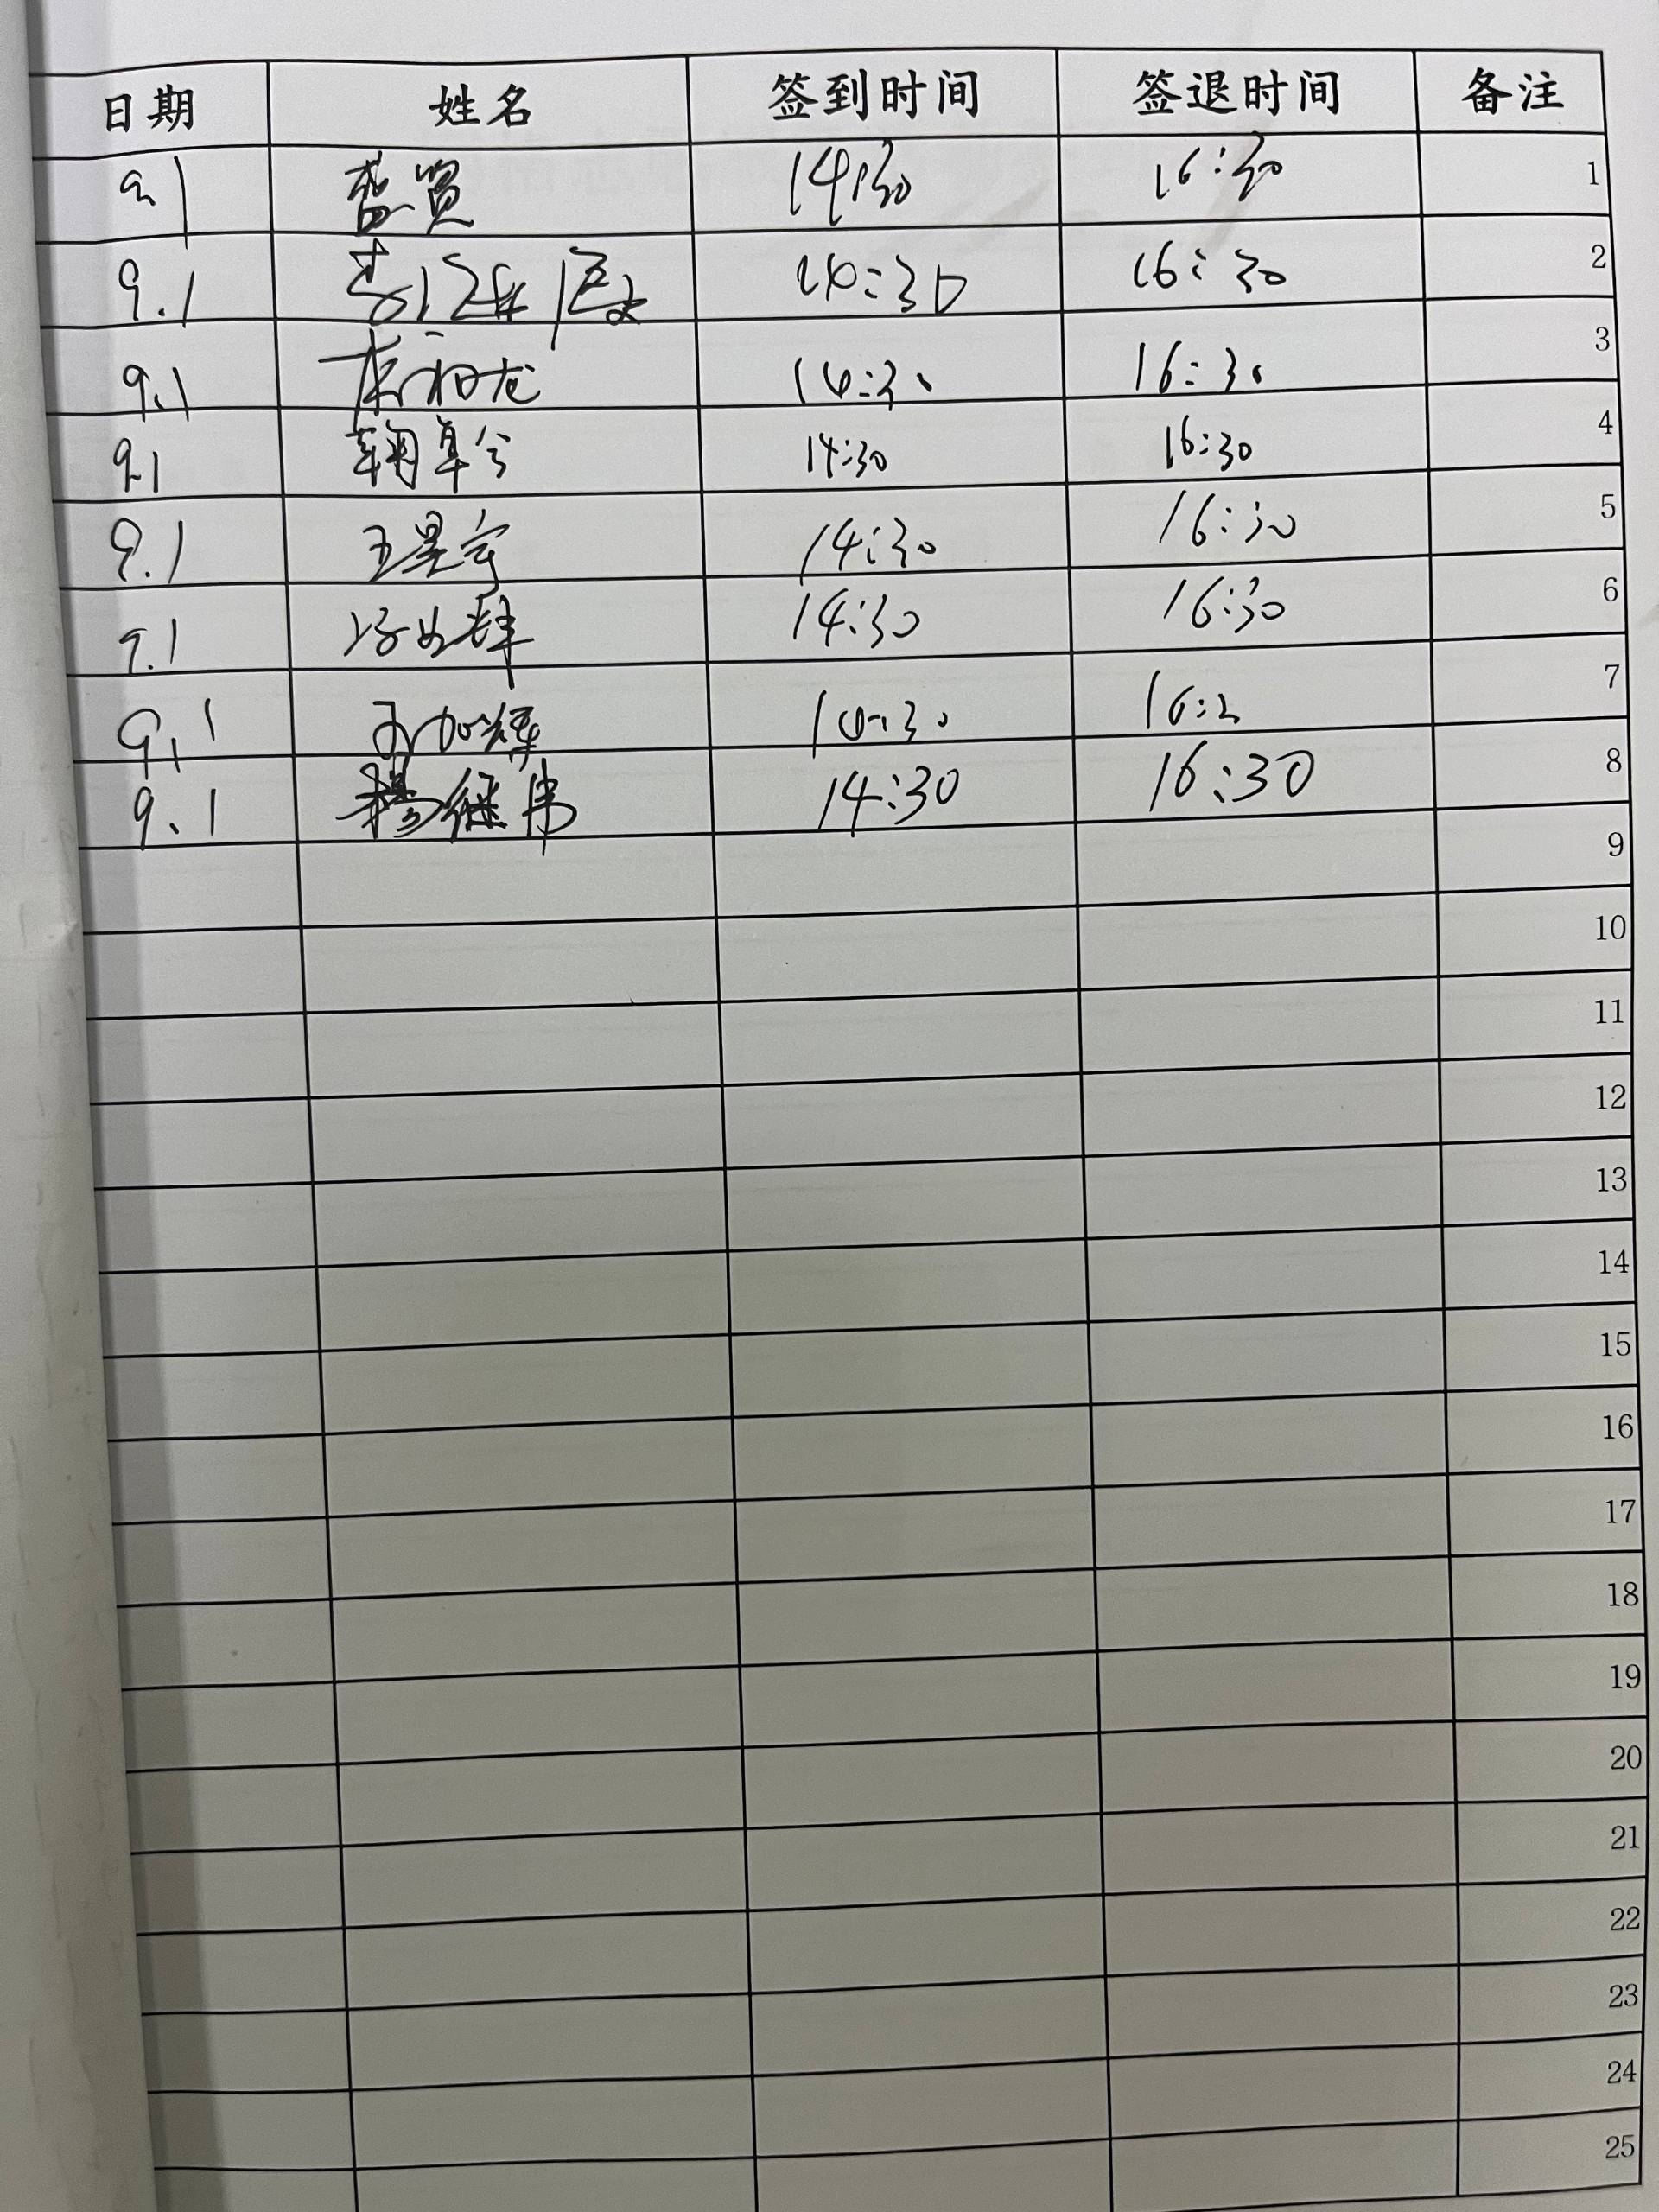 日期 姓名 签到时间 签退时间 备注
9.1 14:30 16:30 1
9.1 14:30 16:30 2
9.1 14:30 16:30 3
9.1 14:30 16:30 4
9.1 王星宇 14:30 16:30 5
9.1 14:30 16:30 6
9.1 14:30 7
9.1 杨继伟 14:30 16:30 8
9
10
11
12
13
14
15
16
17
18
19
20
21
22
23
24
25